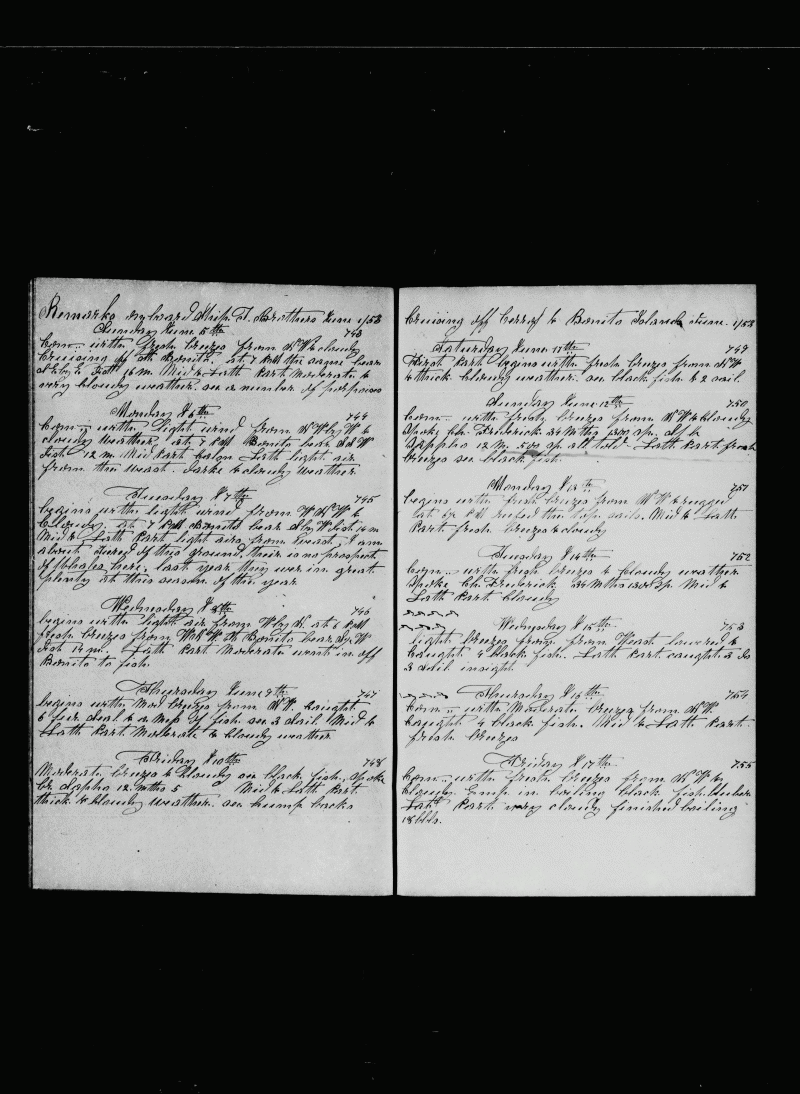 Remarks on board Ship T. Brothers June 1/53
Sunday June 5th 743
Com- with fresh breezes from SW & cloudy
Cruising off the Bonito. at 7 PM the same bear
Dist 16 m. Mid & Lath Part Moderate &
very cloudy weather. see a number of porpoises
Monday # 6th 744
Com- with light wind from SW by W &
cloudy weather, at 7 PM Bonito bear SSW
Dist 12 m. Mid Part calm Lath light air
from the West. Darke & cloudy weather
Tuesday # 7th 745
begins with light wind from WSW &
Cloudy. at 7 PM Bonito bear S by W dist 14 m
Mid & Lath Part light airs from West, I am
about tiered of this ground, their is no prospect
of Whales here. last year they wer in great
plenty at this season of the year
Wednesday # 8th 746
begins with light air from W by S. at 6 PM
fresh breezes from WSW. the Bonito bear W
dist 14 m. Lath Part Moderate went in off
Bonito to fish.
Thursday June 9th 747
begins with Mod breezes from SW. Caught
5 fur seal & a mess of fish. see 3 Sail. Mid &
Lath Part Moderate & cloudy weather
Friday # 10th 748
Moderate breezes & cloudy see black fish. Spoke
Br Sappho 12 Mths 5 Mid & Lath Part
thick & cloudy weather. see hump backs
Cruising off & Bonito Island June. 1/53
Saturday June 11th 749
First Part begins with fresh breezes from SW
& thick cloudy weather. see black fish & 2 sail.
Sunday June 12th 750
Com- with fresh breezes from SW & cloudy
Spoke Ch. Frederick 34 Mths 1300 sp.
Sappho 12 M. 500 sp all told. Lath Part fresh
breezes see black fish.
Monday # 13th 751
begins with fresh breezes from SW & rugged
at 6½ PM reefed the top sails. Mid & Lath
Part fresh breezes & cloudy
Tuesday # 14th 752
Com- with fresh breezes & cloudy weather
Spoke Ch. Frederick 34 Mths 1300 Sp. Mid &
Lath Part cloudy
Wednesday # 15th 753
light breezes from from West lowered &
Caught 7 black fish. Lath Part caught 3 do
3 sail insight.
Thursday # 16th 754
Com- with Moderate breezes from SW.
Caught 4 black fish. Mid & Lath Part
fresh breezes
Friday # 17th 755
Com- with fresh breezes from SW &
Cloudy. Emp in boiling black fish blubber
Lath Part very cloudy finished boiling
18 bbls.